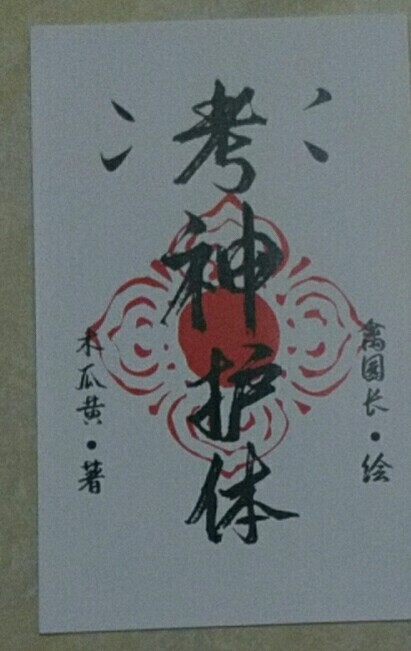 考神护体
木瓜黄·著
禽园长·绘